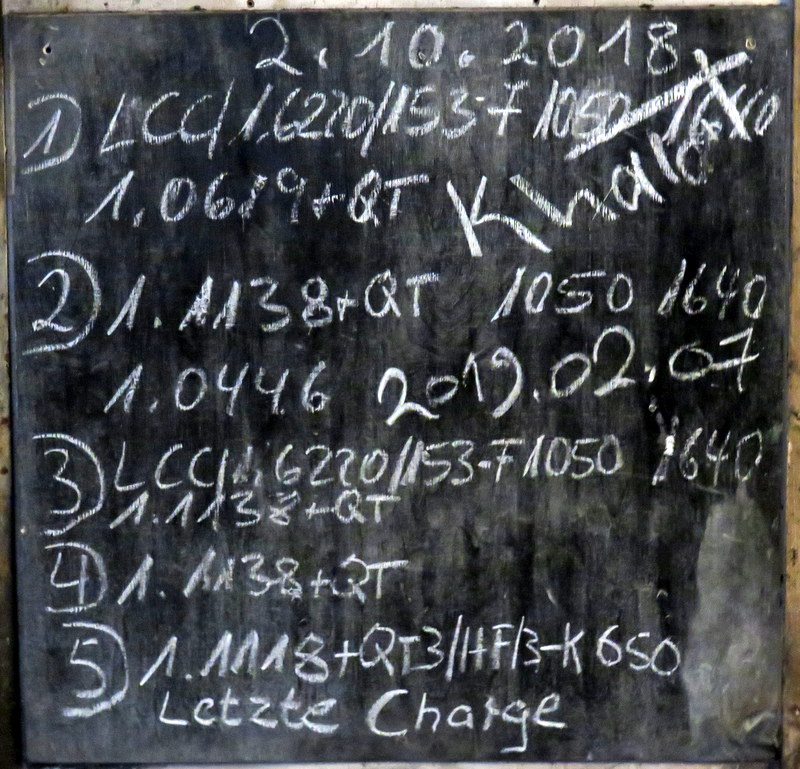 2.10.2018
1) LCC/1.6220/153-F 1050 1640
1.0619+QT
2) 1.1138+QT 1050 1640
1.0446 2019.02.07
3) LCC/1.6220/153-F 1050 1640
1.1138+QT
4) 1.1138+QT
5) 1.1118+QT3/HF/3-K 650
Letzte Charge